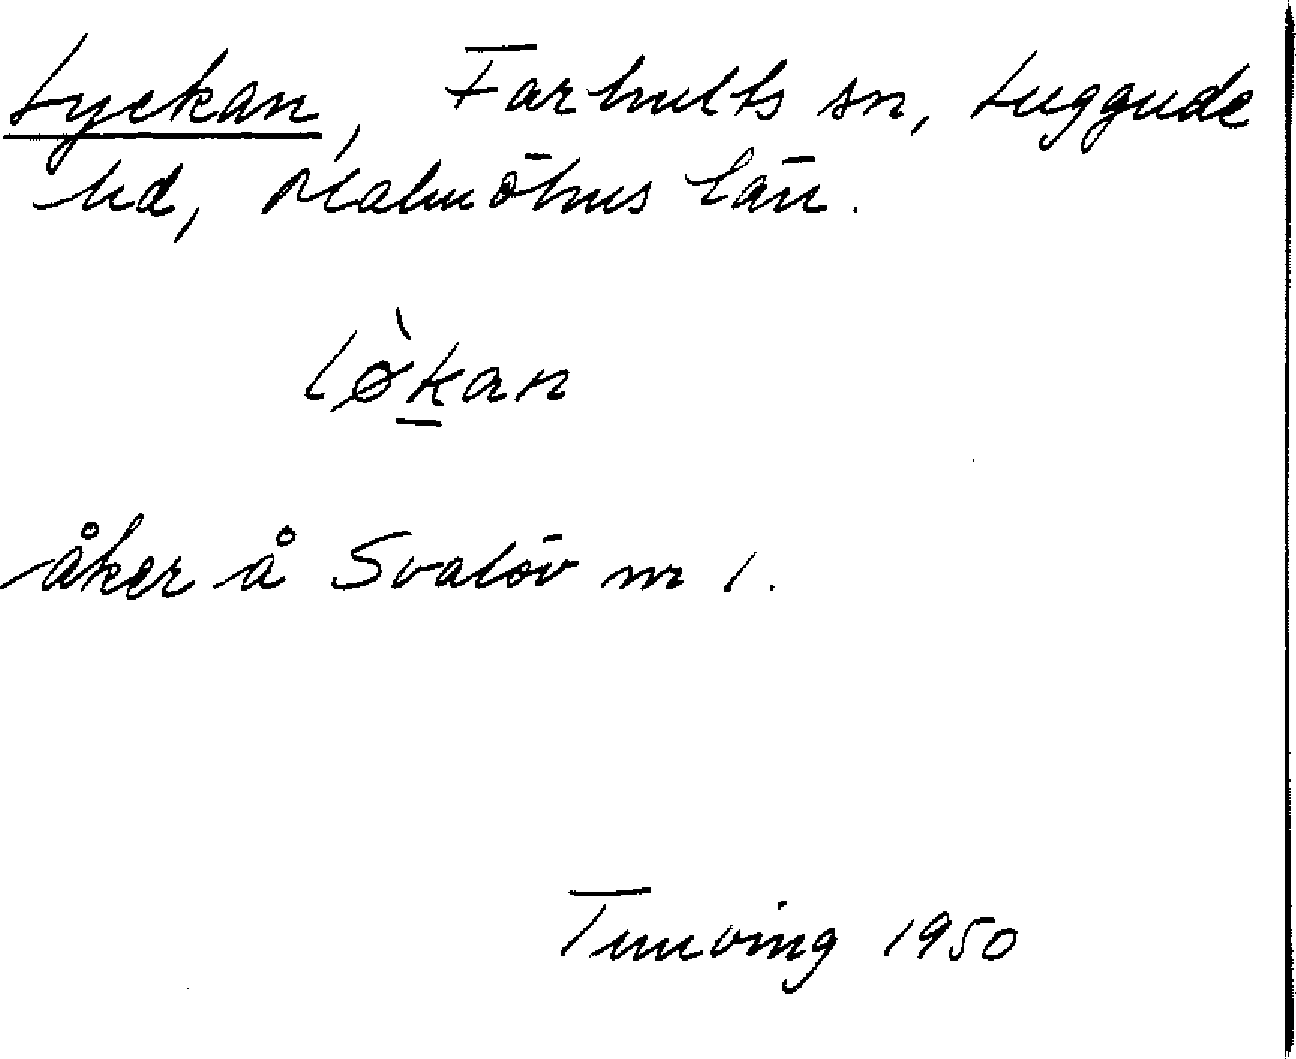 Lyckan, Farhults sn, Luggude
hd, Malmöhus län.
lø̀k̲an
åker å Svalöv nr 1.
Tunving 1950